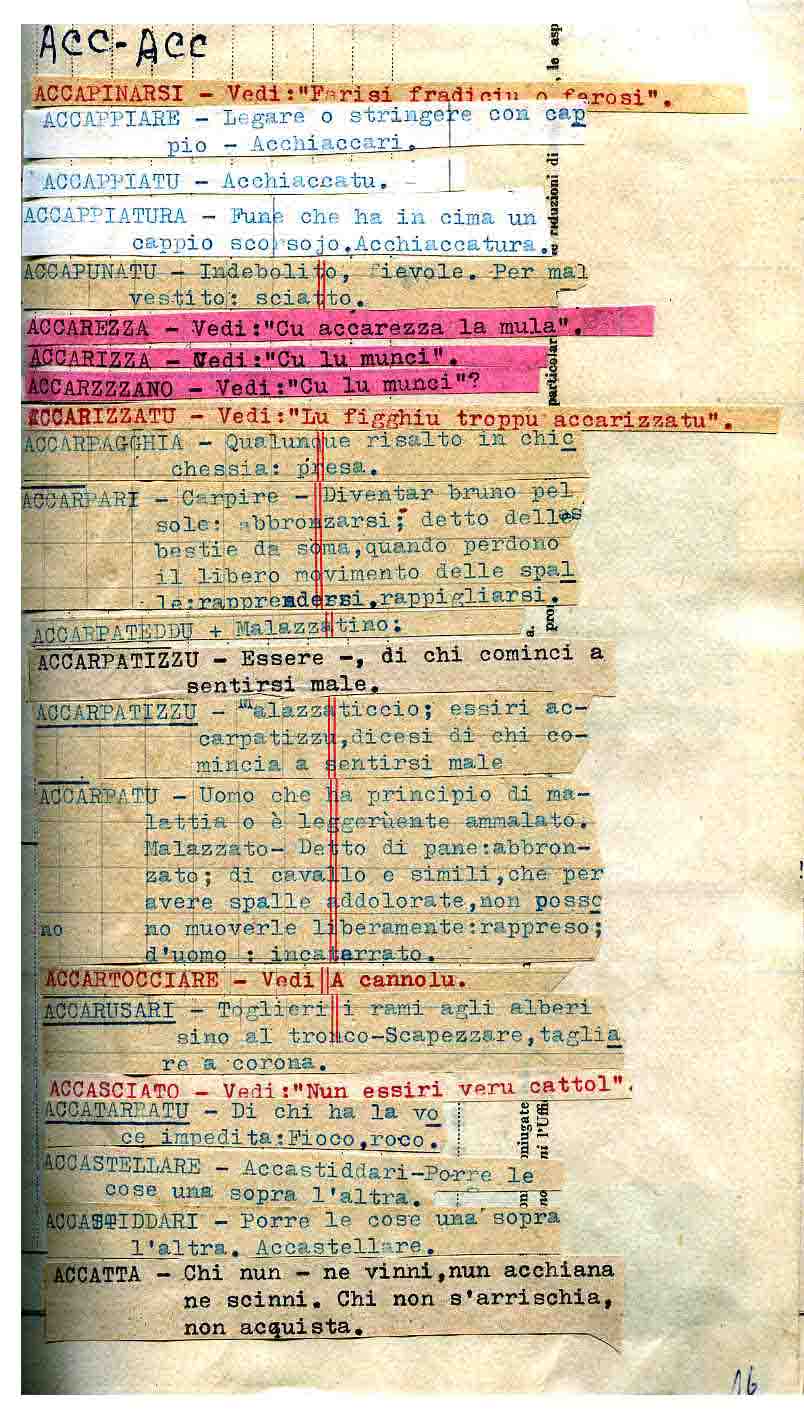 ACC-ACC
ACCAPINARSI - Vedi:"Farisi fradiciu o farosi".
ACCAPPIARE - Legare o stringere con cap
pio - Acchiaccari.
ACCAPPIATU - Acchiaccatu. -
ACCAPPIATURA - Fune che ha in cima un
cappio scorsojo.Acchiaccatura.
ACCAPUNATU - Indebolito, fievole. Per mal
vestito: sciatto.
ACCAREZZA - Vedi:"Cu accarezza la mula".
ACCARIZZA - Vedi:"Cu lu munci".
ACCARZZZANO - Vedi:"Cu lu munci"?
ACCARIZZATU - Vedi:"Lu figghiu troppu accarizzatu".
ACCARPAGGHIA - Qualunque risalto in chic
chessia: presa.
ACCARPARI - Carpire - Diventar bruno pel
sole: abbronzarsi; detto delle
bestie da soma,quando perdono
il libero movimento delle spal
le:rapprendersi.rappigliarsi.
ACCARPATEDDU + Malazzatino:
ACCARPATIZZU - Essere -, di chi cominci a
sentirsi male.
ACCARPATIZZU - malazzaticcio; essiri ac-
carpatizzu,dicesi di chi co-
mincia a sentirsi male
ACCARPATU - Uomo che ha principio di ma-
lattia o è leggerùente ammalato.
Malazzato- Detto di pane:abbron-
zato; di cavallo e simili,che per
avere spalle addolorate,non posso
no no muoverle liberamente:rappreso;
d'uomo : incatarrato.
ACCARTOCCIARE - Vedi A cannolu.
ACCARUSARI - Toglieri i rami agli alberi
sino al tronco-Scapezzare,taglia
re a corona.
ACCASCIATO - Vedi:"Nun essiri veru cattol".
ACCATARRATU - Di chi ha la vo
ce impedita:Fioco,roco.
ACCASTELLARE - Accastiddari-Porre le
cose una sopra l'altra.
ACCASTIDDARI - Porre le cose una sopra
l'altra. Accastellare.
ACCATTA - Chi nun - ne vinni,nun acchiana
ne scinni. Chi non s'arrischia,
non acquista.
, le asp
e riduzioni di
particolar
a.
pro
miugate
ni l'Uffi
on
no
16